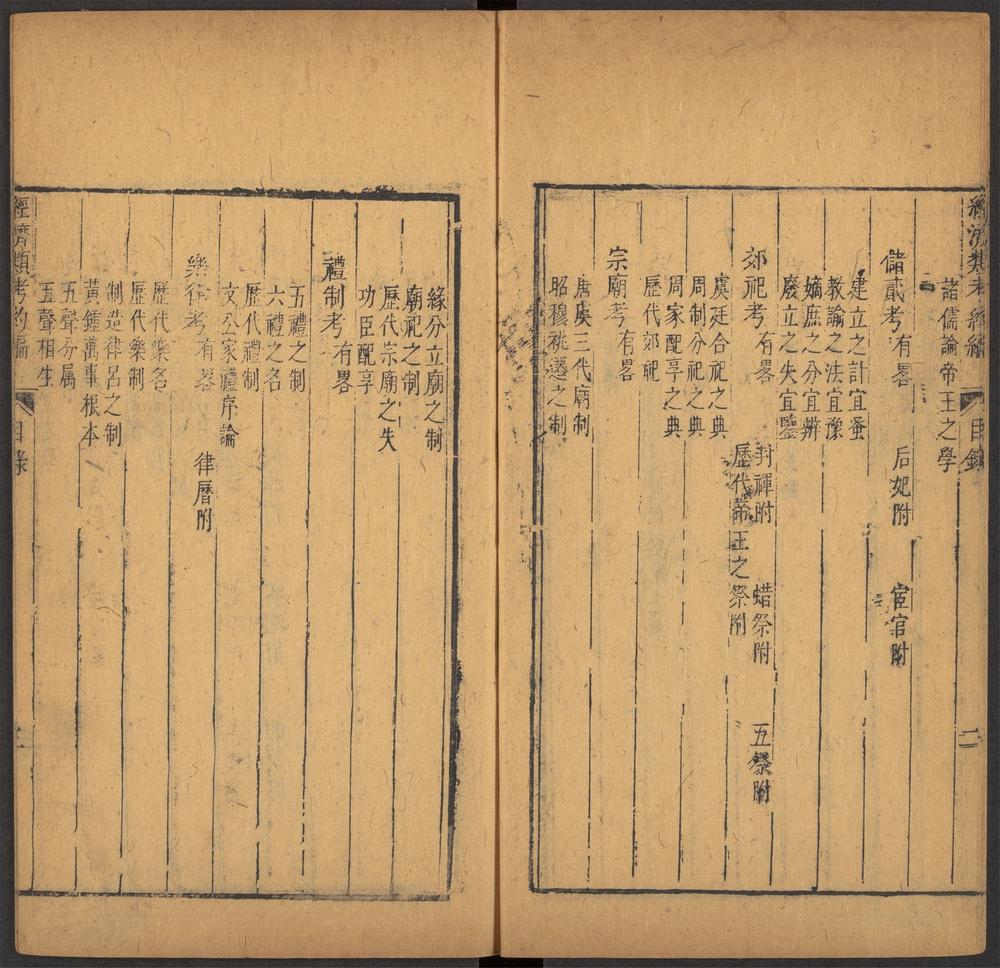 目錄
二
諸儒論帝王之學
儲貳考有畧 后妃附 宦官附
建立之計宜蚤
教諭之法宜豫
嫡庶之分宜辨
廢立之失宜鑒
郊祀考有畧 封禪附 蜡祭附 五祭附
歷代帝王之祭附
虞廷合祀之典
周制分祀之典
周家配享之典
歷代郊祀
宗廟考有畧
唐虞三代廟制
昭穆祧遷之制
緣分立廟之制
廟祀之制
歷代宗廟之失
功臣配享
禮制考有畧
五禮之制
六禮之名
歷代禮制
文公家禮序論
樂律考有畧 律曆附
歷代樂名
歷代樂制
制造律呂之制
黃鍾萬事根本
五聲分属
五聲相生
經濟類考約編
目錄